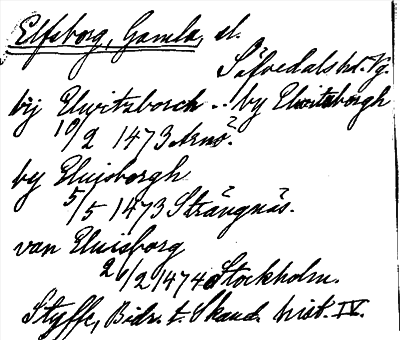 Elfsborg, Gamla, sl.
Säfvedals hd. Vg.
bij Elwitzborch ..! by Elwitzborgh
10/2 1473 Arnö.
by Elujsborgh
5/5 1473 Strängnäs.
van Eluisborg
26/2 1474 Stockholm.
Styffe, Bidr. t. Skand. hist. IV.